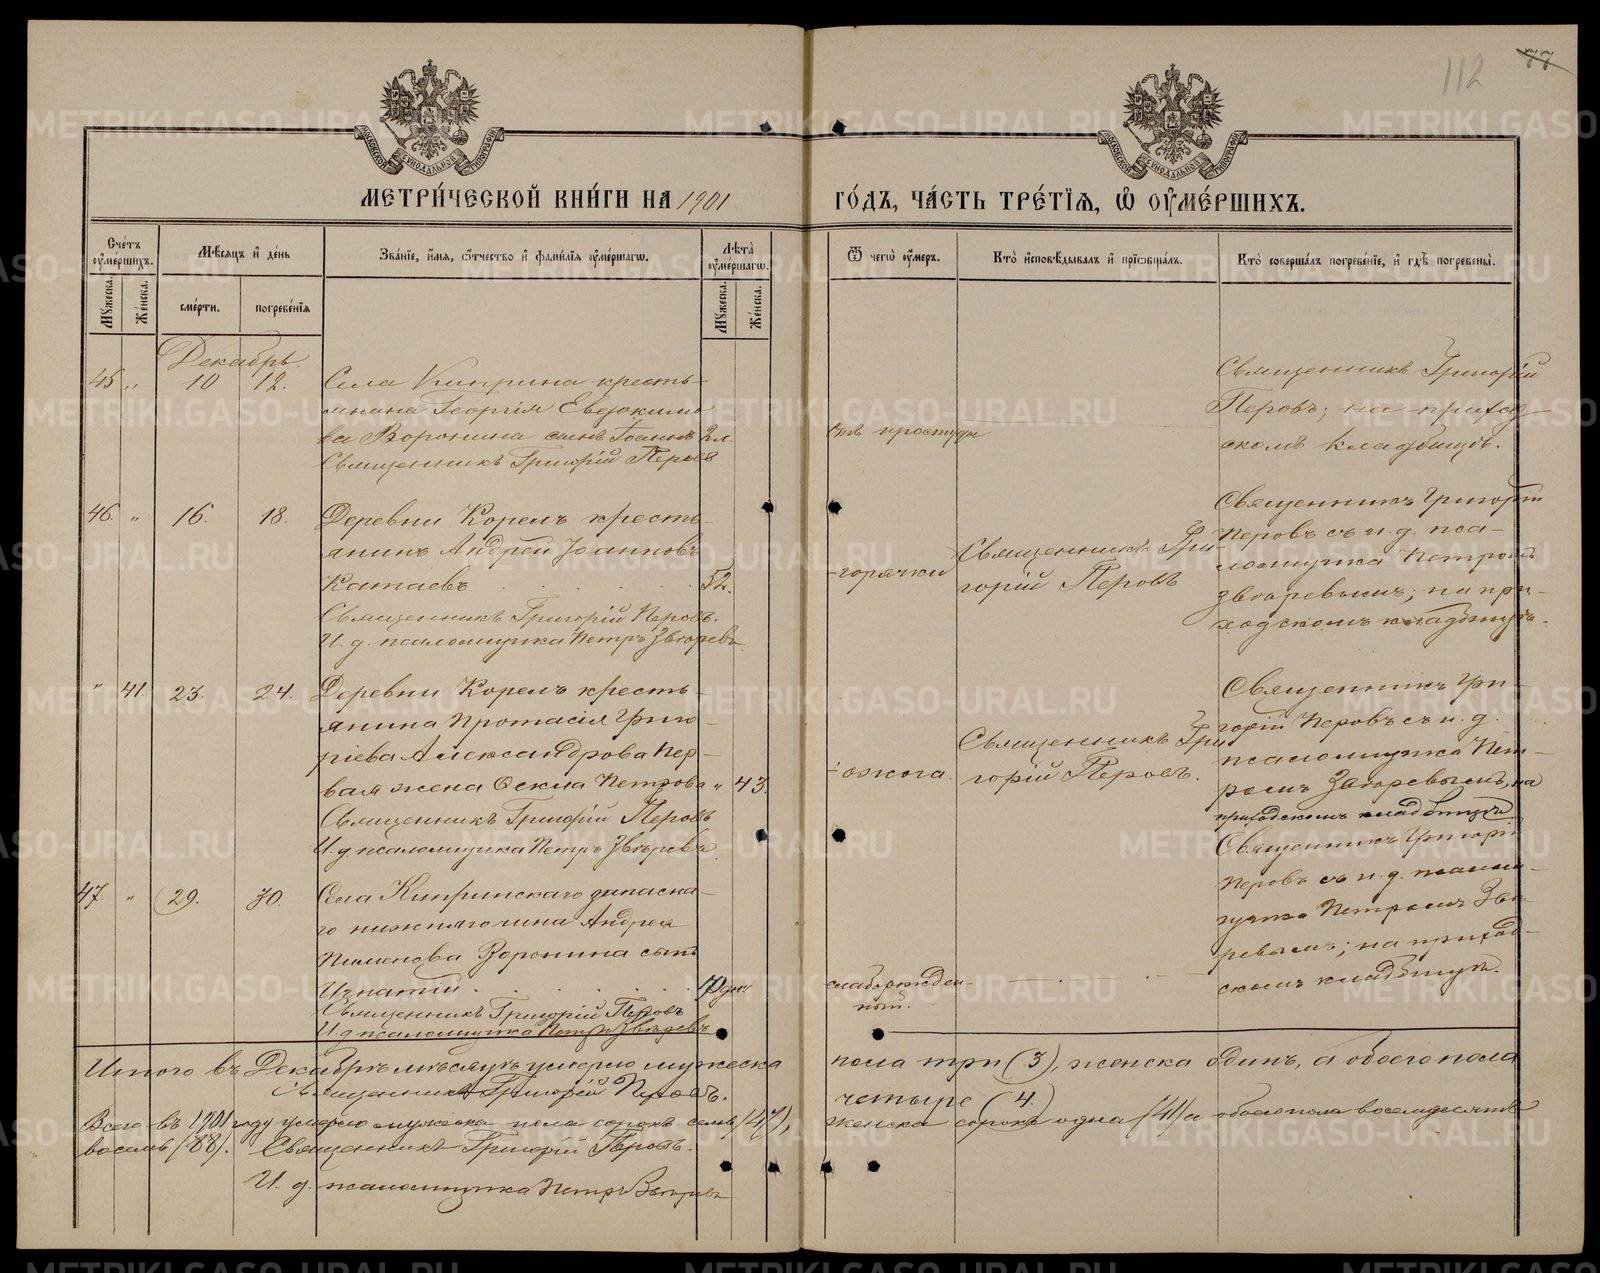 112 77
МОСКОВСКОЙ СѴНОДАЛЬНОЙ ТИПОГРАФІИ
МОСКОВСКОЙ СѴНОДАЛЬНОЙ ТИПОГРАФІИ
МЕТРИ́ЧЕСКОЙ КНИ́ГИ НА 1901 ГО́ДЪ, ЧА́СТЬ ТРЕ́ТІѦ, Ѡ҆ ОУ҆МЕ́РШИХЪ.
Сче́тъ оу҆ме́ршихъ.
Мꙋжеска.
Же́нска.
Мѣ́сѧцъ и҆ де́нь
сме́рти.
погребе́нїѧ
Зва́нїе, и҆́мѧ, ѻ҆́тчество и҆ фами́лїѧ оу҆ме́ршагѡ.
Лѣ́та оу҆ме́ршагѡ.
Мꙋжеска.
Же́нска.
Ѿ чегѡ̀ оу҆́меръ.
Кто̀ и҆сповѣ́дывалъ и҆ прїѡбща́лъ.
Кто̀ соверша́лъ погребе́нїе, и҆ гдѣ̀ погребены̀.
Декабрь.
45 „ 10 12. Села Киприна кресть-
янина Георгія Евдокимо
ва Воронина сынъ Іоаннъ 2 л.
Священникъ Григорій Перовъ
отъ простуды
Священникъ Григорій
Перовъ; на приход-
скомъ кладбищѣ.
46. „ 16. 18. Деревни Корелъ кресть-
янинъ Андрей Іоанновъ
Катаевъ 52.
Священникъ Григорій Перовъ.
И. д. псаломщика Петръ Звѣревъ
- горячки
Священникъ Гри-
горій Перовъ
Священникъ Григорій
Перовъ съ и. д. пса-
ломщика Петромъ
Звѣревымъ; на при-
ходскомъ кладбищѣ.
„ 41. 23. 24. Деревни Корелъ кресть-
янина Протасія Григо-
ріева Александрова пер-
вая жена Петрова „ 43.
Священникъ Григорій Перовъ
И. д. псаломщика Петръ Звѣревъ
- ожога.
Священникъ Гри
горій Перовъ.
Священникъ Гри-
горій Перовъ съ и. д.
псаломщика Пет-
ромъ Звѣревымъ, на
приходскомъ кладбищѣ.
47. „ 29. 30. Села Кипринскаго запасна-
го нижняго чина Андрея
Пименова Воронина сынъ
Игнатій
Священникъ Григорій Перовъ
И. д. псаломщика Петръ Звѣревъ
слаборожден-
ный.
Священникъ Григорій
Перовъ съ и. д. псалом-
щика Петромъ Звѣ-
ревымъ; на приход-
скомъ кладбищѣ.
Итого въ Декабрѣ мѣсяцѣ умерло мужеска пола три (3), женска одинъ, а обоего пола
четыре (4.)
Священникъ Григорій Перовъ.
Всего въ 1901 году умерло мужеска пола сорокъ семь (47), женска сорокъ одна (41) а обоего пола восемьдесятъ
восемь (88). Священникъ Григорій Перовъ.
И. д. псаломщика Петръ Звѣревъ
METRIKI.GASO-URAL.RU